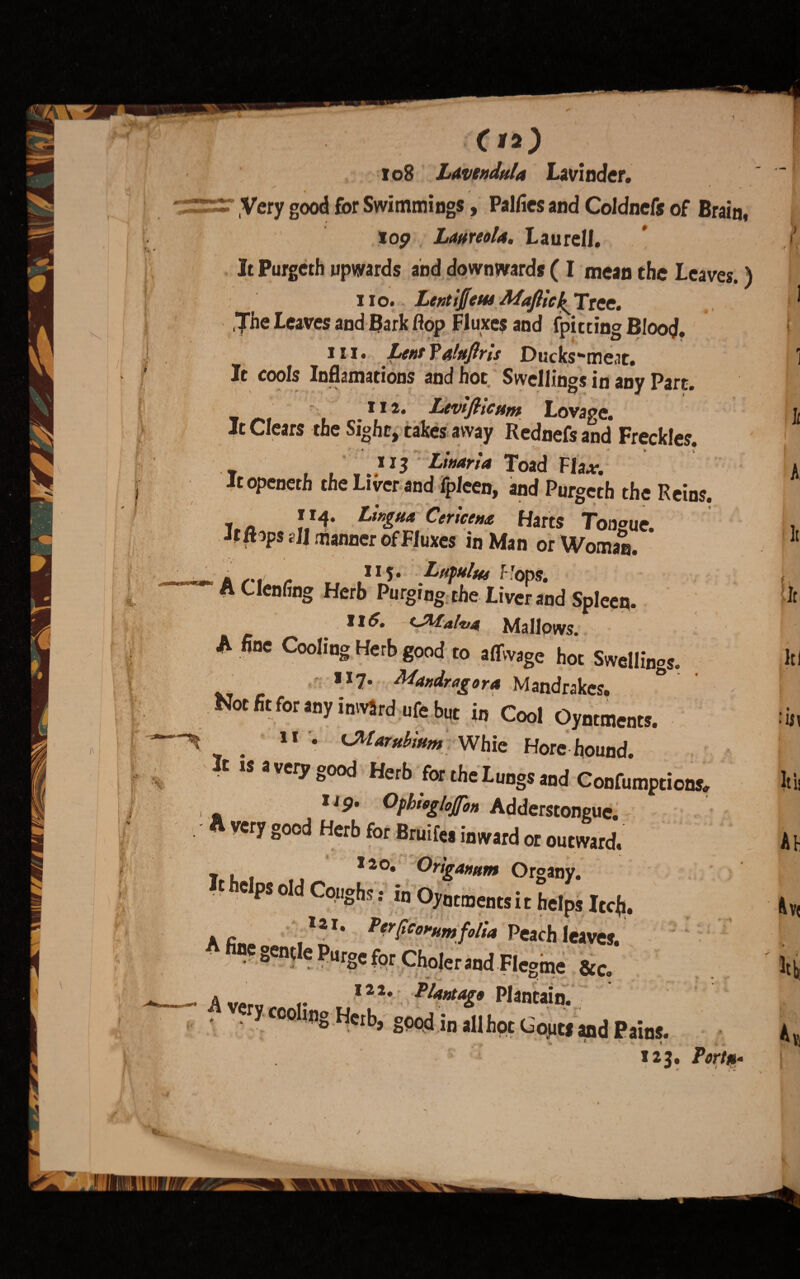 (12)
108 Lavendula Lavinder.
Very good for Swimmings, Palſies and Coldneſs of Brain,
109 Laureola. Laurell.
It Purgeth upwards and downwards ( I mean the Leaves. )
110. Lentiſſeus Maſtick Tree.
The Leaves and Bark ſtop Fluxes and ſpitting Blood.
111. Lens Paluſtris Ducks-meat.
It cools Inflamations and hot Swellings in any Part.
112. Leviſticum Lovage.
It Clears the Sight, takes away Redneſs and Freckles.
113 Linaria Toad Flax.
It openeth the Liver and ſpleen, and Purgeth the Reins.
114. Lingua Cericenæ Harts Tongue.
It ſtops all manner of Fluxes in Man or Woman.
115. Lupulus Hops.
A Clenſing Herb Purging the Liver and Spleen.
116. Malva Mallows.
A fine Cooling Herb good to aſſwage hot Swellings.
117. Mandragora Mandrakes.
Not fit for any inward uſe but in Cool Oyntments.
11 . Marubium Whie Hore-hound.
It is a very good Herb for the Lungs and Conſumptions,
119. Ophiogloſſon Adderstongue.
A very good Herb for Bruiſes inward or outward.
120. Origanum Organy.
It helps old Coughs: in Oyntments it helps Itch.
121. Perſicorum folia Peach leaves.
A fine gentle Purge for Choler and Flegme &c.
122. Plantago Plantain.
A very cooling Herb, good in all hot Gouts and Pains.
123. Portu-